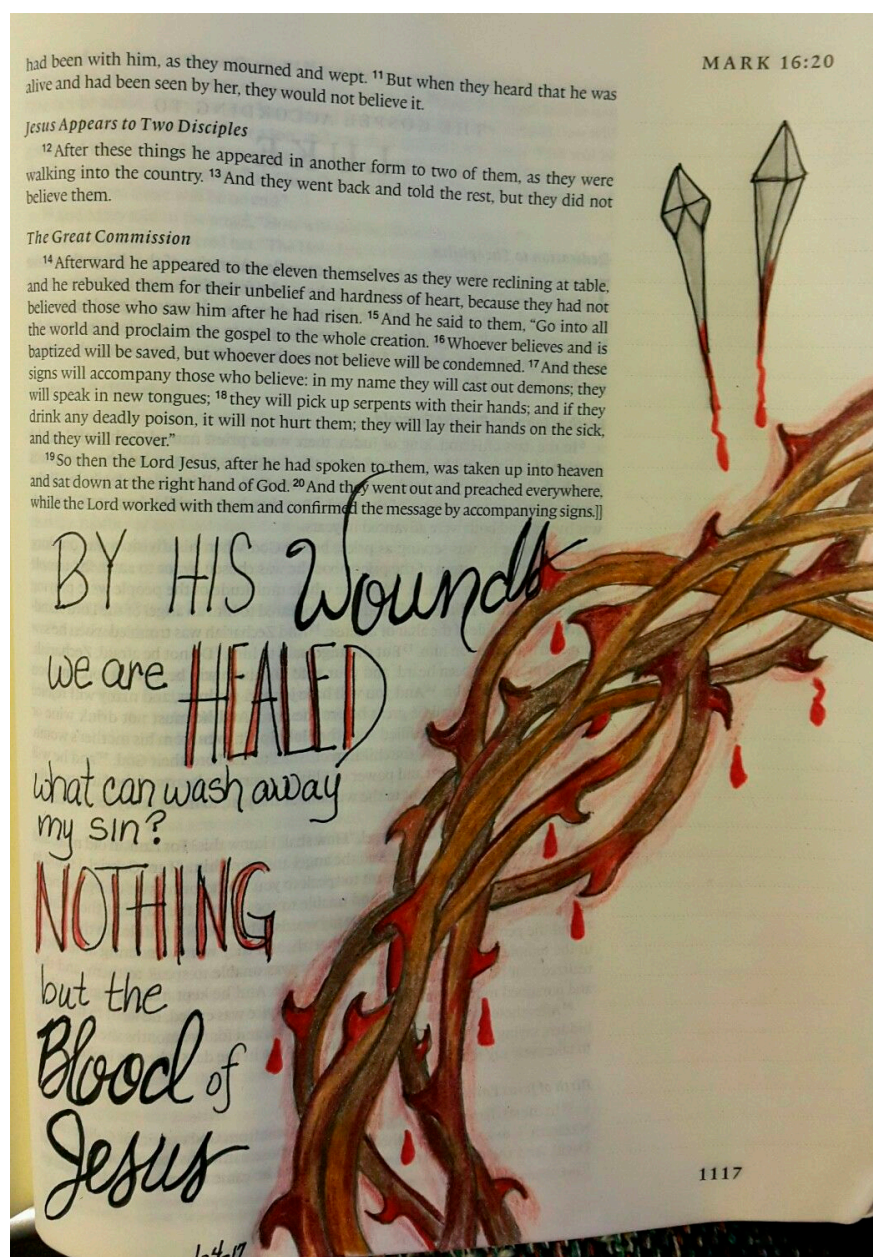 MARK 16:20
had been with him, as they mourned and wept. 11 But when they heard that he was
alive and had been seen by her, they would not believe it.
Jesus Appears to Two Disciples
12 After these things he appeared in another form to two of them, as they were
walking into the country. 13 And they went back and told the rest, but they did not
believe them.
The Great Commission
14 Afterward he appeared to the eleven themselves as they were reclining at table,
and he rebuked them for their unbelief and hardness of heart, because they had not
believed those who saw him after he had risen. 15 And he said to them, “Go into all
the world and proclaim the gospel to the whole creation. 16 Whoever believes and is
baptized will be saved, but whoever does not believe will be condemned. 17 And these
signs will accompany those who believe: in my name they will cast out demons; they
will speak in new tongues; 18 they will pick up serpents with their hands; and if they
drink any deadly poison, it will not hurt them; they will lay their hands on the sick,
and they will recover.”
19 So then the Lord Jesus, after he had spoken to them, was taken up into heaven
and sat down at the right hand of God. 20 And they went out and preached everywhere,
while the Lord worked with them and confirmed the message by accompanying signs.]]
BY HIS Wounds
we are HEALED
what can wash away
my sin?
NOTHING
but the
Blood of
Jesus
1117